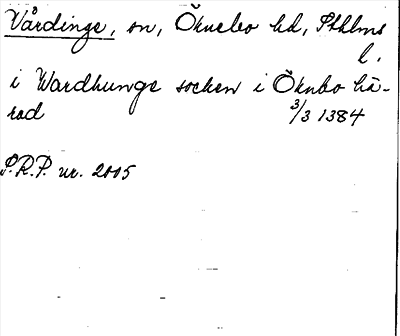 Vårdinge, sn, Öknebo hd, Sthlms
l.
i Wardhunge socken i Öknbo hä-
rad 3/3 1384
S.R.P. nr. 2005